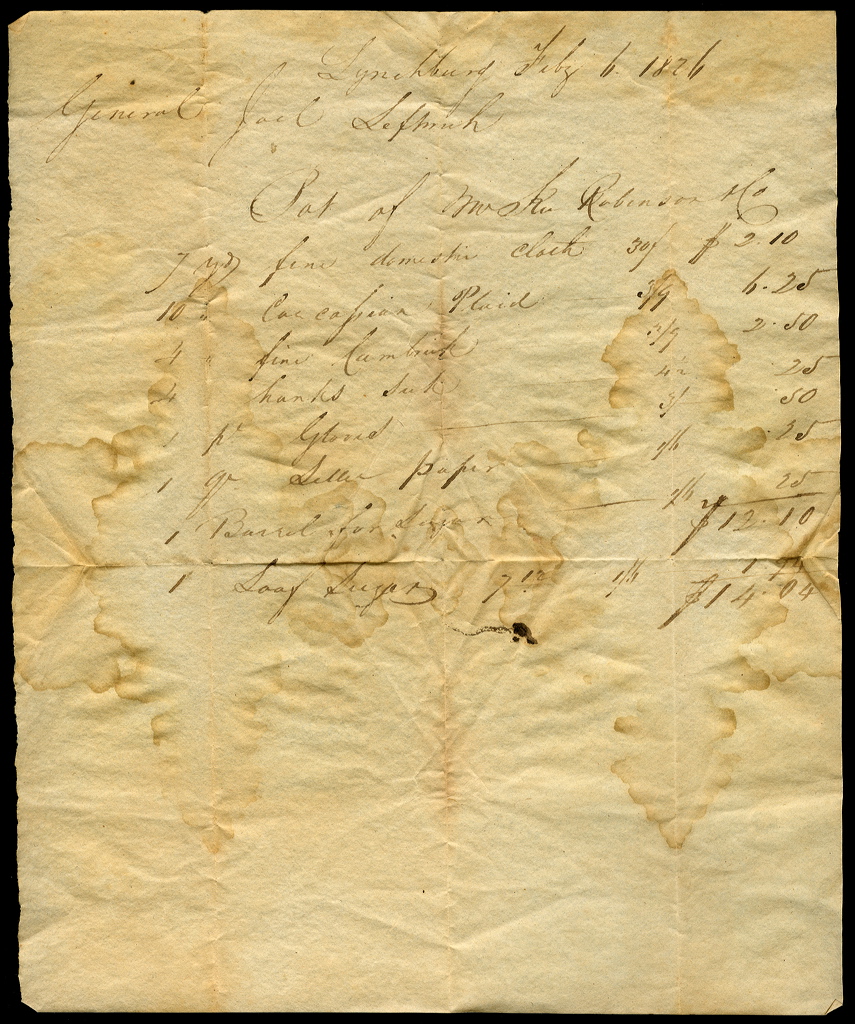 Lynchburg Feby 6. 1826
General Joel Leftwich
Bot of Robinson & Co
7 yds fine domestic cloth 30/ $ 2.10
10 " Circassian Plaid 3/9 6.25
4 " fine Cambrick 3/9 2.50
4 hanks Silk 4½ .25
1 pr Gloves 3/ .50
1 qr Letter paper 1/6 .25
1 Barrel for Sugar 1/6 25
$12.10
1 Loaf Sugar 7 12 1/6 1.94
$14.04